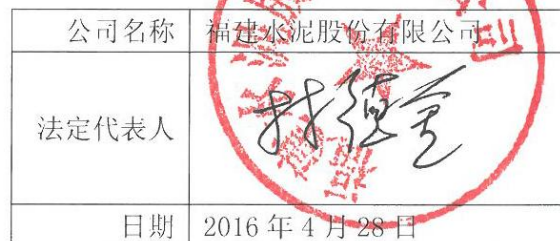 公司名称 福建水泥股份有限公司
法定代表人 林德金
日期 2016年4月28日